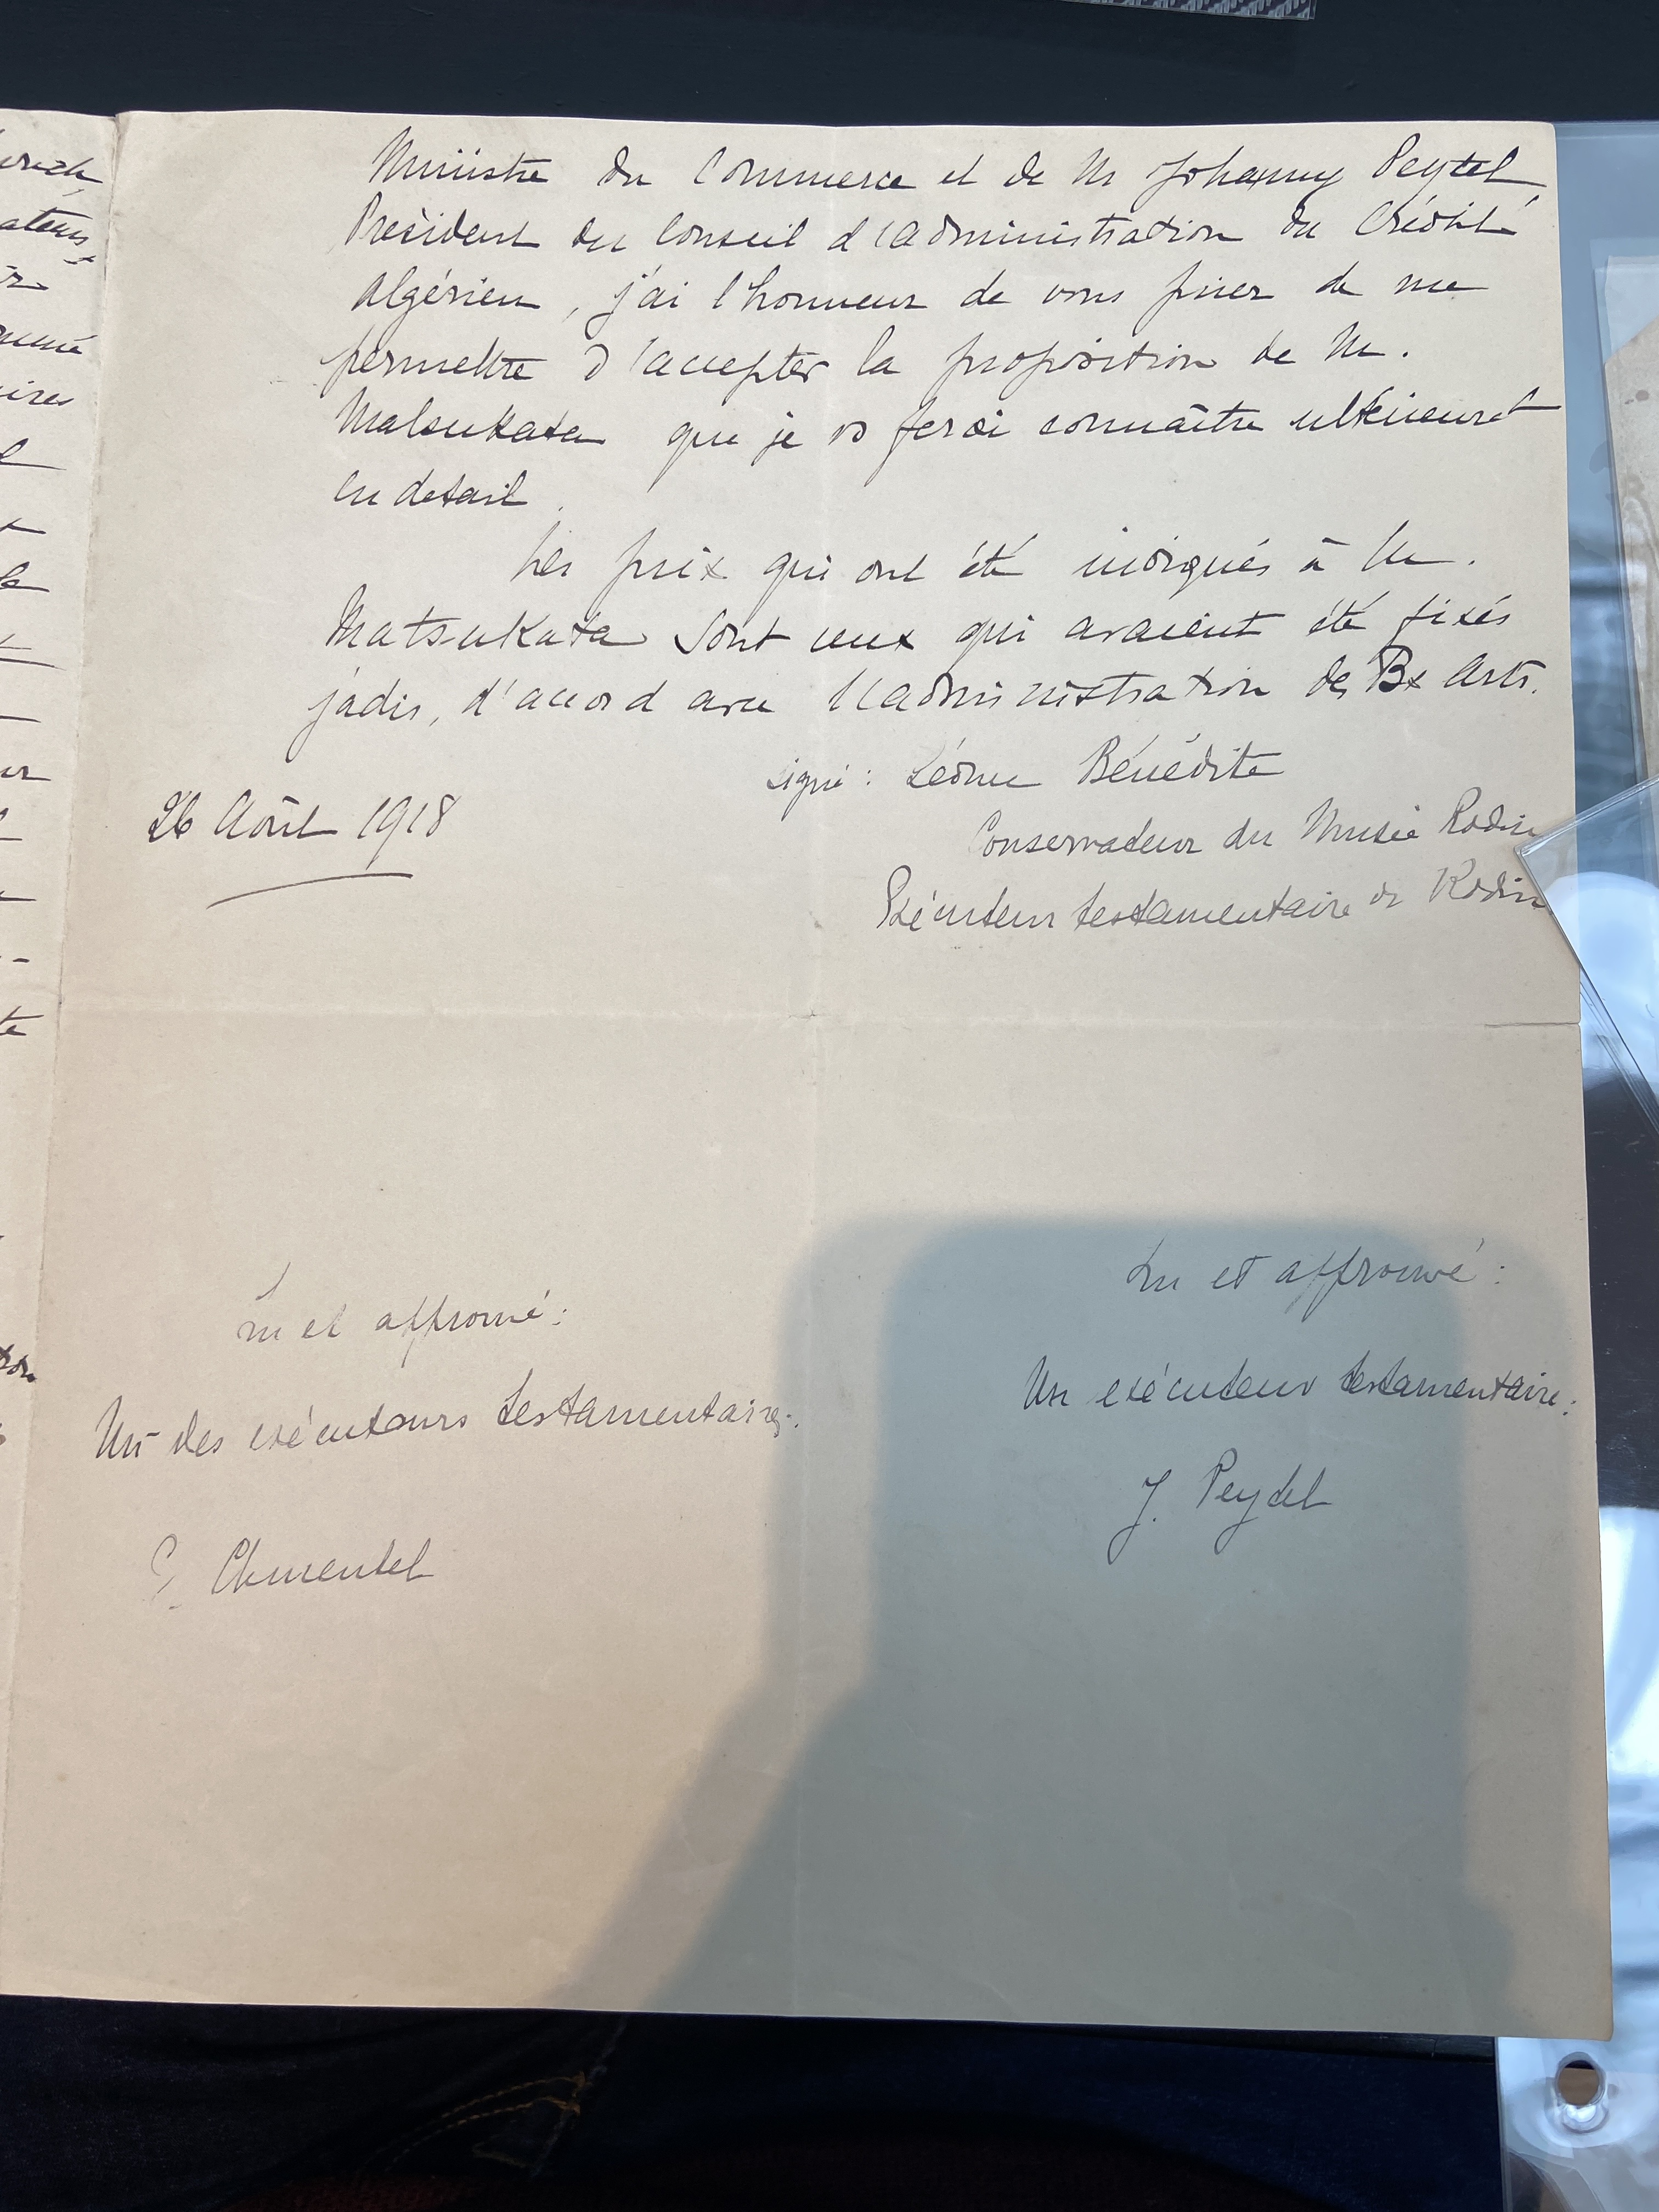 Ministre du Commerce et de M Johanny Peytel
Président du Conseil d'administration du Crédit
Algérien, j'ai l'honneur de vous prier de me
permettre d'accepter la proposition de M.
Matsukata que je vs ferai connaître ultérieurt
en detail.
Les prix qui ont été indiqués à M.
Matsukata sont ceux qui avaient été fixés
jadis, d'accord avec l'administration des Bx Arts.
signé : Léonce Bénédite
26 Août 1918
Conservateur du Musée Rodin
Exécuteur testamentaire de Rodin
Lu et approuvé :
Un exécuteur testamentaire :
J. Peytel
et approuvé :
Un des exécuteurs testamentaires.
Clementel